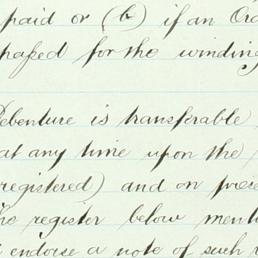 paid or (b) if an Ord
passed for the winding
Debenture is transferable
at any time upon the
registered) and on prese
the register below ment
endorse a note of such